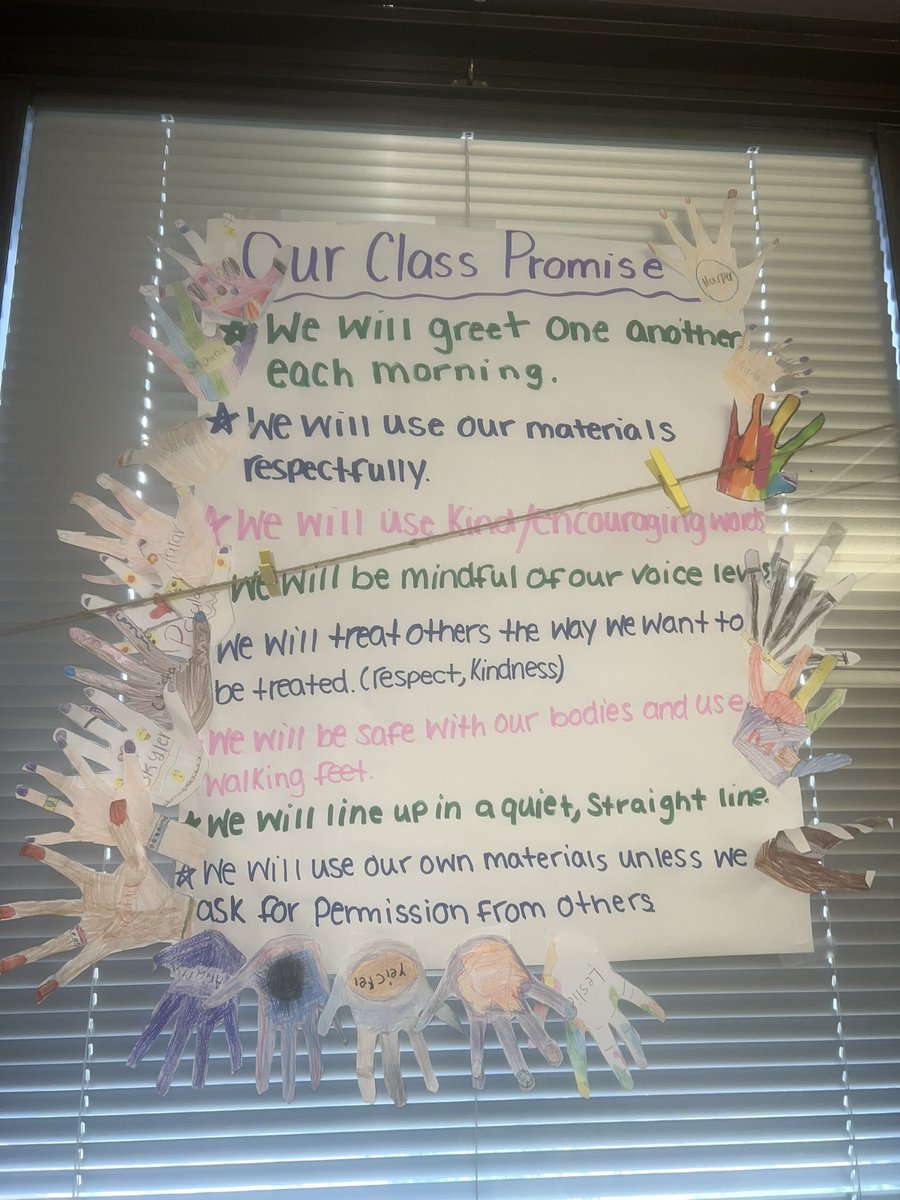 Our Class Promise
We will greet one another
each morning.
We will use our materials
respectfully.
We will use Kind/encouraging words
We will be mindful of our voice levels
We will treat others the way we want to
be treated. (respect, Kindness)
We will be safe with our bodies and use
walking feet.
We will line up in a quiet, straight line.
We will use our own materials unless we
ask for permission from others
Harper
Skyler
Yeickel
Leslie